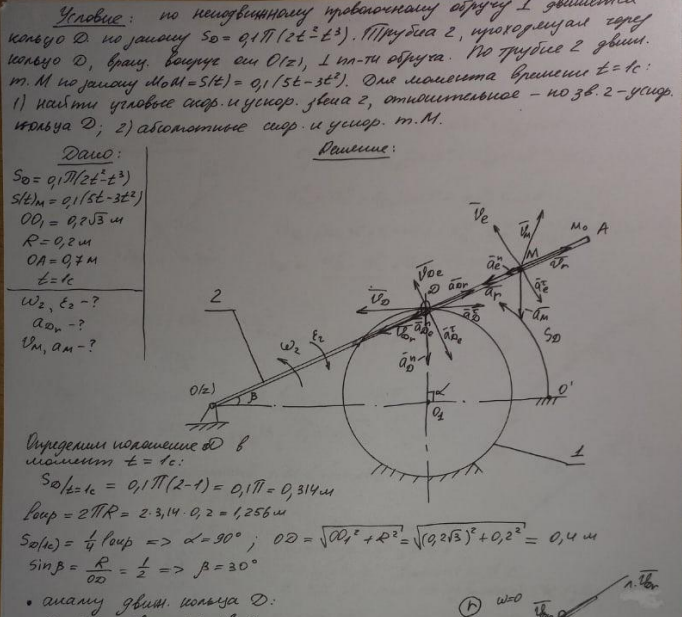 Условие: по неподвижному проволочному обручу 1 движется
кольцо D по закону S_D = 0,1π(2t²-t³). Трубка 2, проходящая через
кольцо D, вращ. вокруг оси O(z), ⊥ пл-ти обруча. По трубке 2 движ.
т. M по закону M₀M = S(t) = 0,1(5t-3t²). Для момента времени t = 1с:
1) найти угловые скор. и ускор. звена 2, относительное - по зв. 2 - ускор.
кольца D; 2) абсолютные скор. и ускор. т. M.
Дано:
Решение:
S_D = 0,1π(2t²-t³)
S(t)_M = 0,1(5t-3t²)
OO₁ = 0,2√3 м
R = 0,2 м
OA = 0,7 м
t = 1с
ω₂, ε₂ - ?
a_Dr - ?
V_M, a_M - ?
V̄e
V̄M
M₀ A
M
āeⁿ
V̄r
āeᵗ
ār
āM
V̄De
D
āDr
V̄D
āDᵗ
V̄Dr
āDeⁿ
āDeᵗ
āDⁿ
S_D
2
ω₂
ε₂
O(z)
β
α
O₁
O'
1
Определим положение D в
момент t = 1с:
S_D/t=1с = 0,1π(2-1) = 0,1π = 0,314 м
lокр = 2πR = 2·3,14·0,2 = 1,256 м
S_D(1с) = 1/4 lокр => α = 90° ; OD = √(OO₁² + R²) = √((0,2√3)² + 0,2²) = 0,4 м
sinβ = R/OD = 1/2 => β = 30°
• анализ движ. кольца D:
r
ω=0
л. V̄Dr
V̄Dr